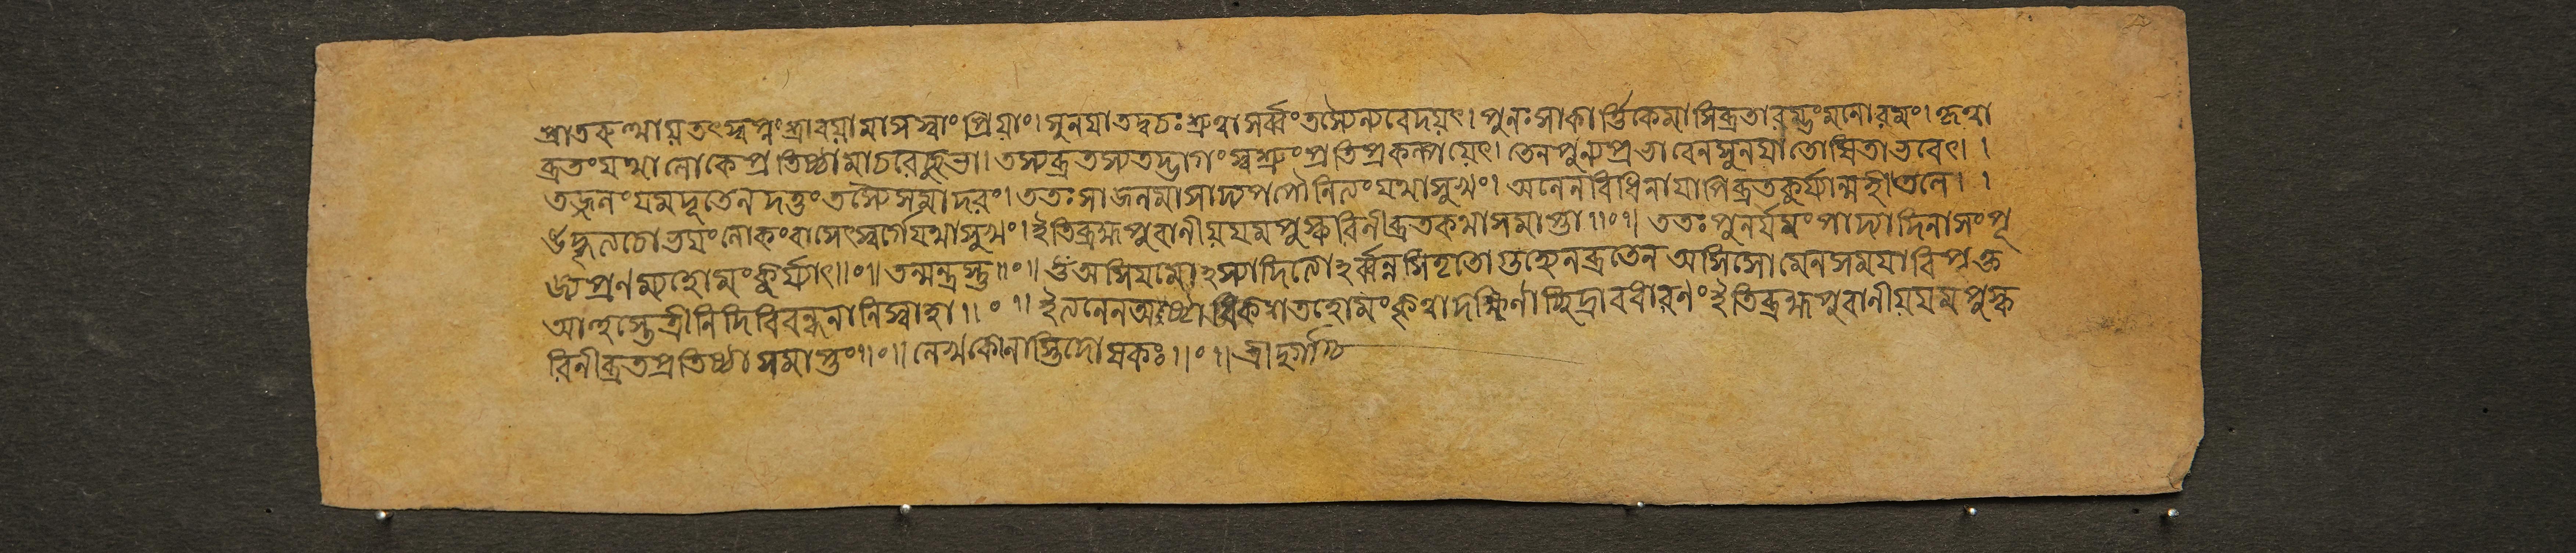 প্রাতরুত্থায় তৎস্বপ্নং শ্রাবয়ামাস স্বাং প্রিয়াং। সুনয়া তদ্বচঃ শ্রুত্বা সর্ব্বং তস্যৈ ন্যবেদয়ৎ। পুনঃ সা কার্ত্তিকে মাসি ব্রতারম্ভং মনোরমং। কৃত্বা
ব্রতং যথা লোকে প্রতিষ্ঠামাচরেচ্ছুভা। তস্য ব্রতস্য তদ্ভাগং স্বশ্রুং প্রতি প্রকল্পয়েৎ। তেন পুন্য প্রভাবেন সুনয়া তোষিতা ভবেৎ।।
তজ্জলং যমদূতেন দত্তং তস্যৈ সমাদরং। ততঃ সা জলমাসাদ্য পপৌ নিত্যং যথাসুখং। অনেন বিধিনা যাপি ব্রত কুর্য্যান্মহীতলে।।
চোভয়ং লোকং বাসেৎ স্বর্গে যথাসুখং। ইতি ব্রহ্মপুরানীয় যমপুস্করিনীব্রতকথা সমাপ্তা॥০॥ ততঃ পুনর্যমং পাদ্যাদিনা সংপূ
জ্য প্রণম্য হোমং কুর্য্যাৎ॥০॥ তন্মন্ত্রস্তু॥০॥ ওঁ অসি যমোঽস্যাদিত্যোঽর্ব্বন্নসি তৃতো গুহ্যেন ব্রতেন অসি সোমেন সময়া বিপৃক্ত
আহুস্তে ত্রীনি দিবি বন্ধনানি স্বাহা॥০॥ ইত্যনেন হোমং কৃত্বা দক্ষিণা ইতি ব্রহ্মপুরানীয় যমপুস্ক
রিনীব্রতপ্রতিষ্ঠা সমাপ্তং॥০॥ লেখকো নাস্তি দোষকঃ॥০॥ শ্রীদুর্গা